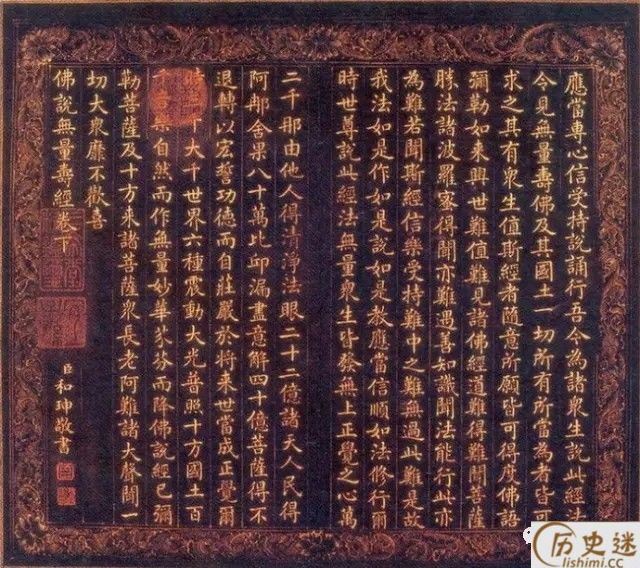 應當專心信受持說誦行吾今為諸衆生說此經法
今見無量壽佛及其國土一切所有所當為者皆可
求之其有衆生值斯經者隨意所願皆可得度佛語
彌勒如來興世難值難見諸佛經道難得難聞菩薩
勝法諸波羅蜜得聞亦難遇善知識聞法能行此亦
為難若聞斯經信樂受持難中之難無過此難是故
我法如是作如是說如是教應當信順如法修行爾
時世尊說此經法無量衆生皆發無上正覺之心萬
二千那由他人得清淨法眼二十二億諸天人民得
阿那舍果八十萬比邱漏盡意解四十億菩薩得不
退轉以宏誓功德而自莊嚴於將來世當成正覺爾
時千大千世界六種震動大光普照十方國土百
千樂自然而作無量妙華芬而降佛說經已彌
勒菩薩及十方來諸菩薩衆長老阿難諸大聲聞一
切大衆靡不歡喜
佛說無量壽經卷下
臣和珅敬書
历史迷
lishimi.cc